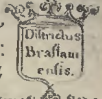 Districtus
Braſlavi
ensis.